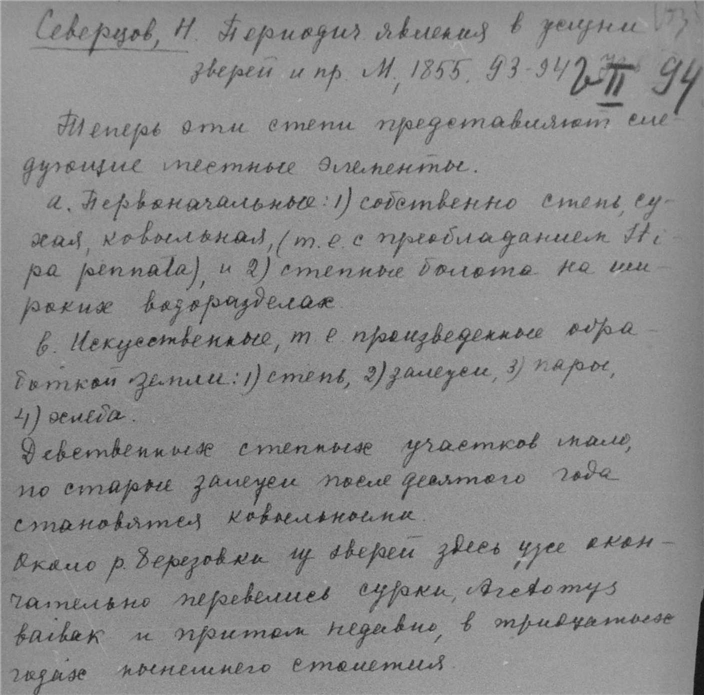 Северцов, Н. Периодич явления в жизни
зверей и пр. М, 1855. 93-94 II 94
Теперь эти степи представляют сле-
дующие местные элементы.
а. Первоначальные: 1) собственно степь, су-
хая, ковыльная, (т. е. с преобладанием Sti-
pa pennata), и 2) степные болота на ши-
роких водоразделах.
в. Искусственные, т е. произведенные обра-
боткой земли: 1) степь, 2) залежи, 3) пары,
4) хлеба.
Девственных степных участков мало,
но старые залежи после десятого года
становятся ковыльными.
Около р. Березовки из зверей здесь уже окон-
чательно перевелись сурки, Arctomys
baibak и притом недавно, в тридцатых
годах нынешнего столетия.